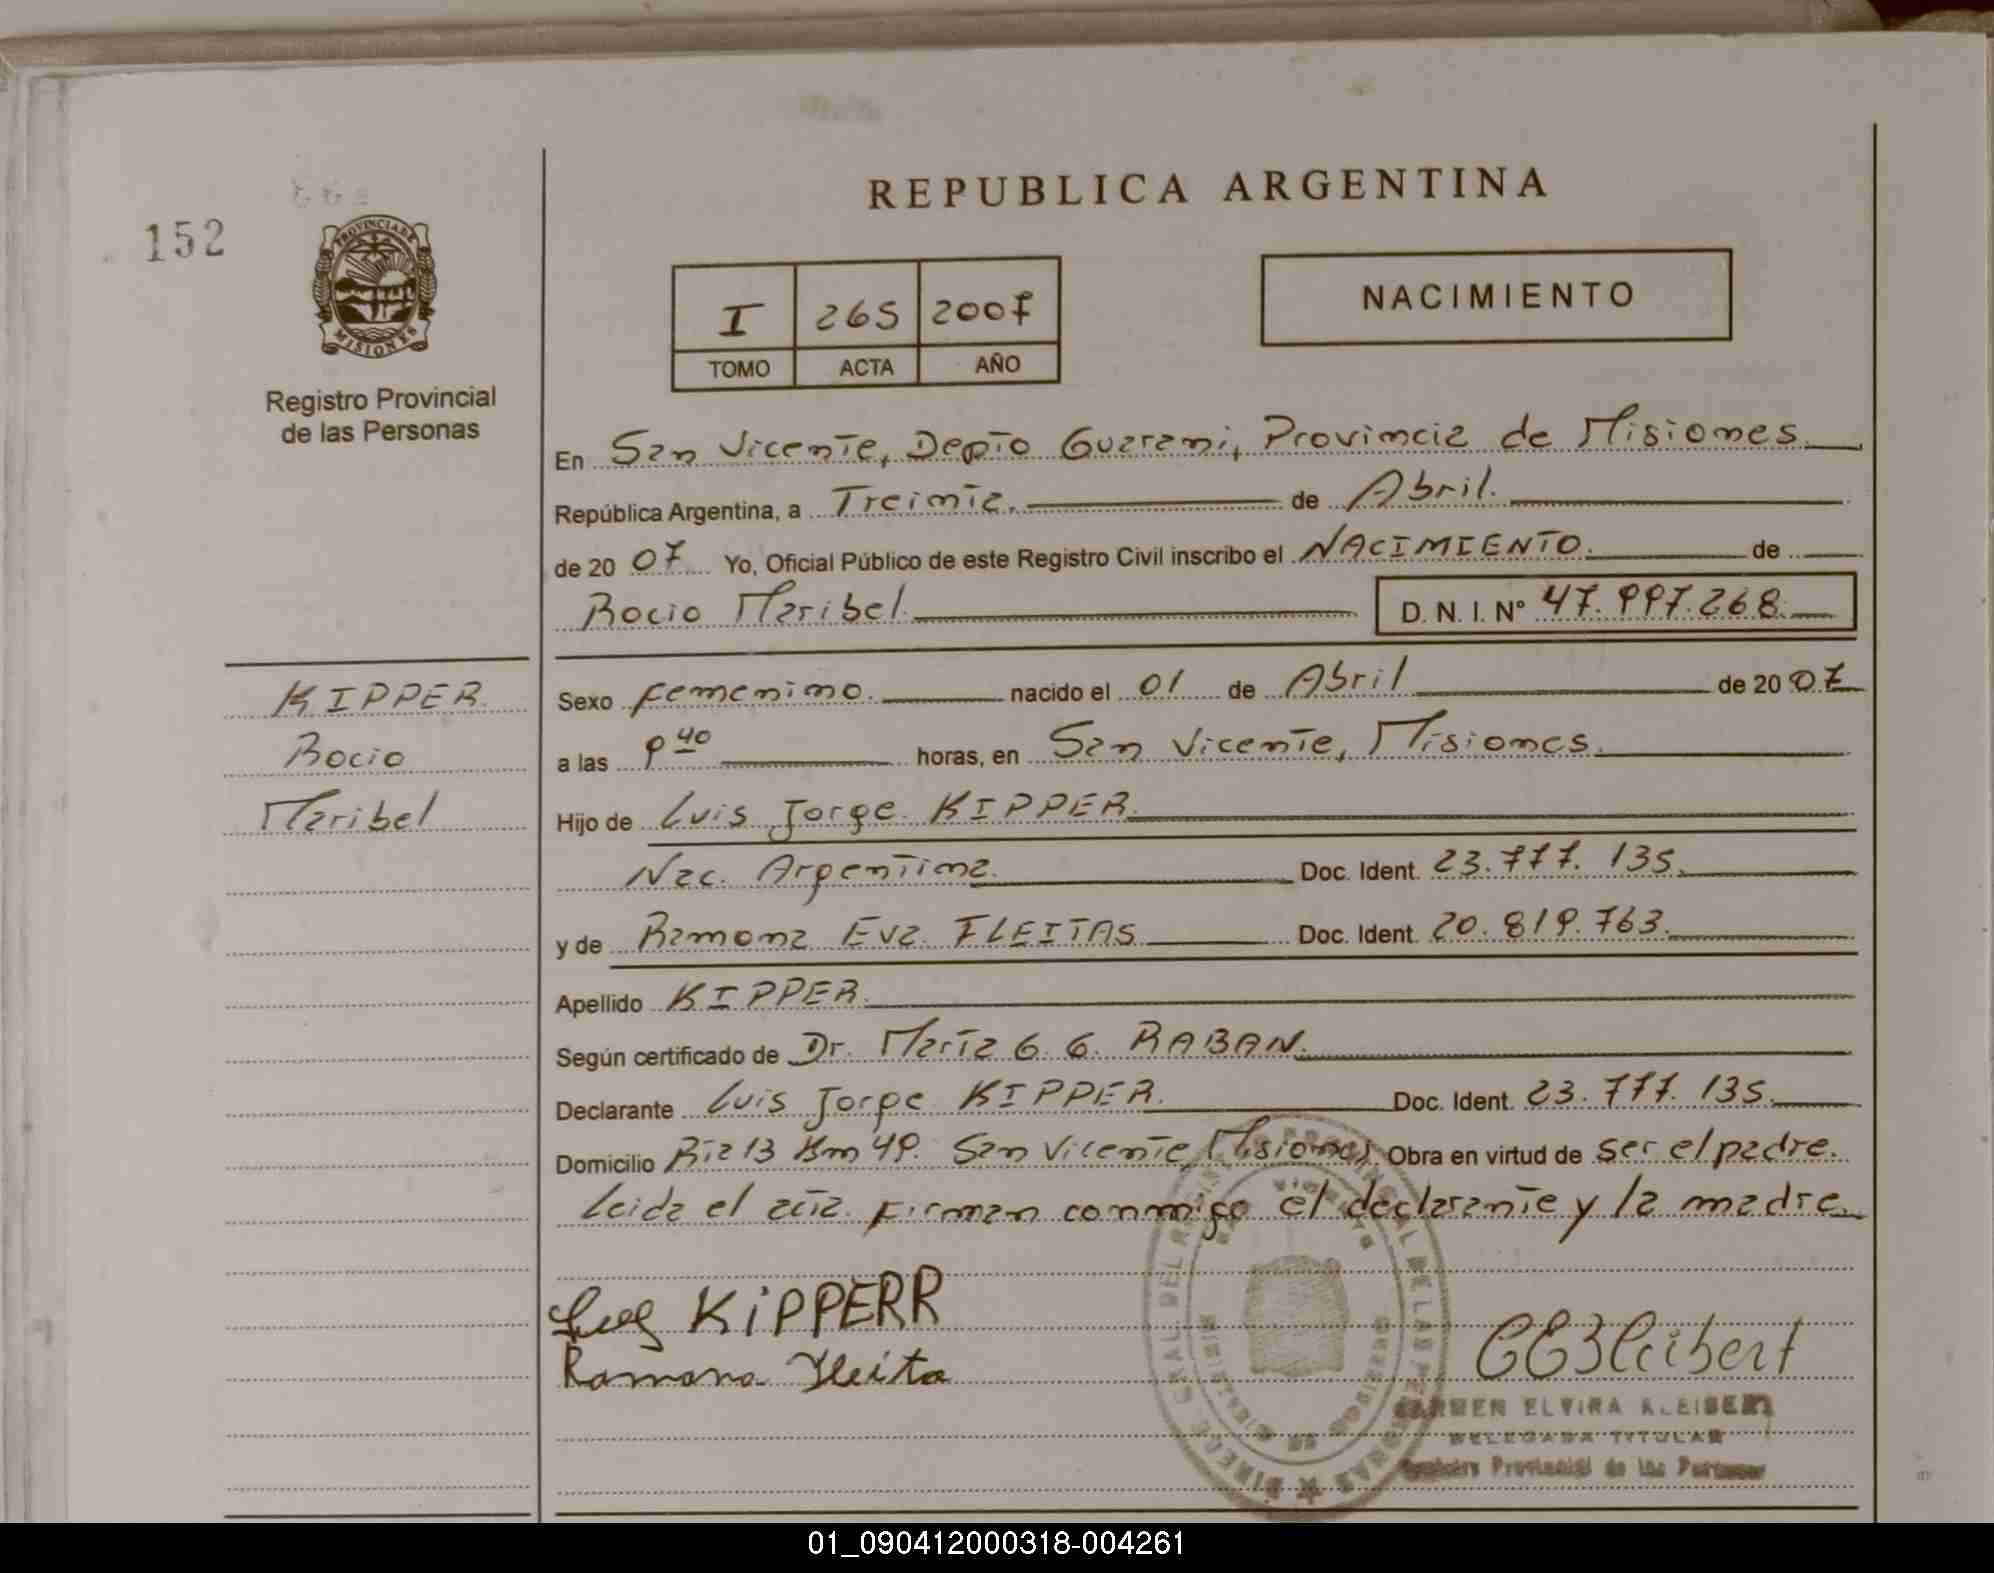 152
PROVINCIA DE
MISIONES
Registro Provincial
de las Personas
REPUBLICA ARGENTINA
NACIMIENTO
I 265 2007
TOMO ACTA AÑO
En San Vicente, Depto Guarani, Provincia de Misiones.
República Argentina, a Treinta. de Abril.
de 20 07 Yo, Oficial Público de este Registro Civil inscribo el NACIMIENTO. de
Rocio Maribel. D. N. I. N° 47.997.268.
KIPPER
Rocio
Maribel
Sexo Femenino. nacido el 01 de Abril de 20 07
a las 9 40 horas, en San Vicente, Misiones.
Hijo de Luis Jorge KIPPER.
Nac. Argentina. Doc. Ident. 23.777.135.
y de Ramona Eva FLEITAS Doc. Ident. 20.819.763.
Apellido KIPPER.
Según certificado de Dr. Marta G. G. RABAN.
Declarante Luis Jorge KIPPER. Doc. Ident. 23.777.135.
Domicilio Rta 13 Km 49. San Vicente, Misiones Obra en virtud de ser el padre.
Leida el acta. Firman conmigo el declarante y la madre.
KiPPERR
Ramona Fleita
CARMEN ELVIRA KLEIBERT
DELEGADA TITULAR
Registro Provincial de las Personas
01_090412000318-004261